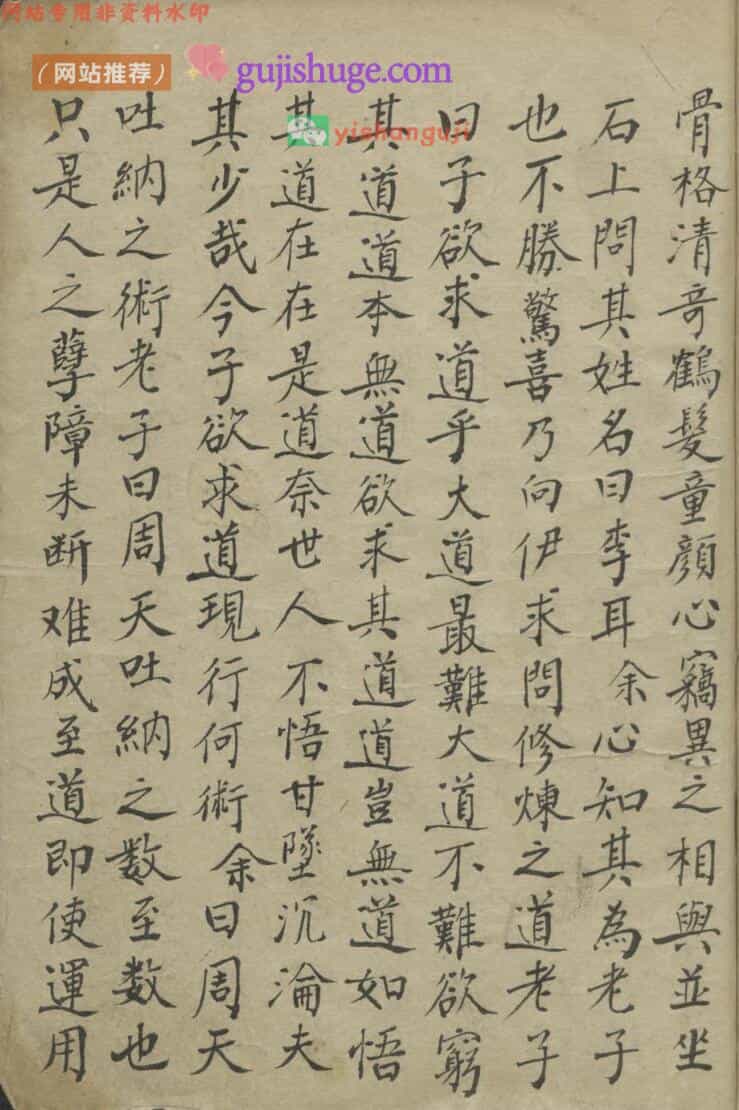 网站专用非资料水印
（网站推荐）
gujishuge.com
yishanguji
骨格清奇鶴髮童顏心竊異之相與並坐
石上問其姓名曰李耳余心知其為老子
也不勝驚喜乃向伊求問修煉之道老子
曰子欲求道乎大道最難大道不難欲窮
其道道本無道欲求其道道豈無道如悟
其道在在是道奈世人不悟甘墜沉淪夫
其少哉今子欲求道現行何術余曰周天
吐納之術老子曰周天吐納之数至数也
只是人之孽障未断难成至道即使運用